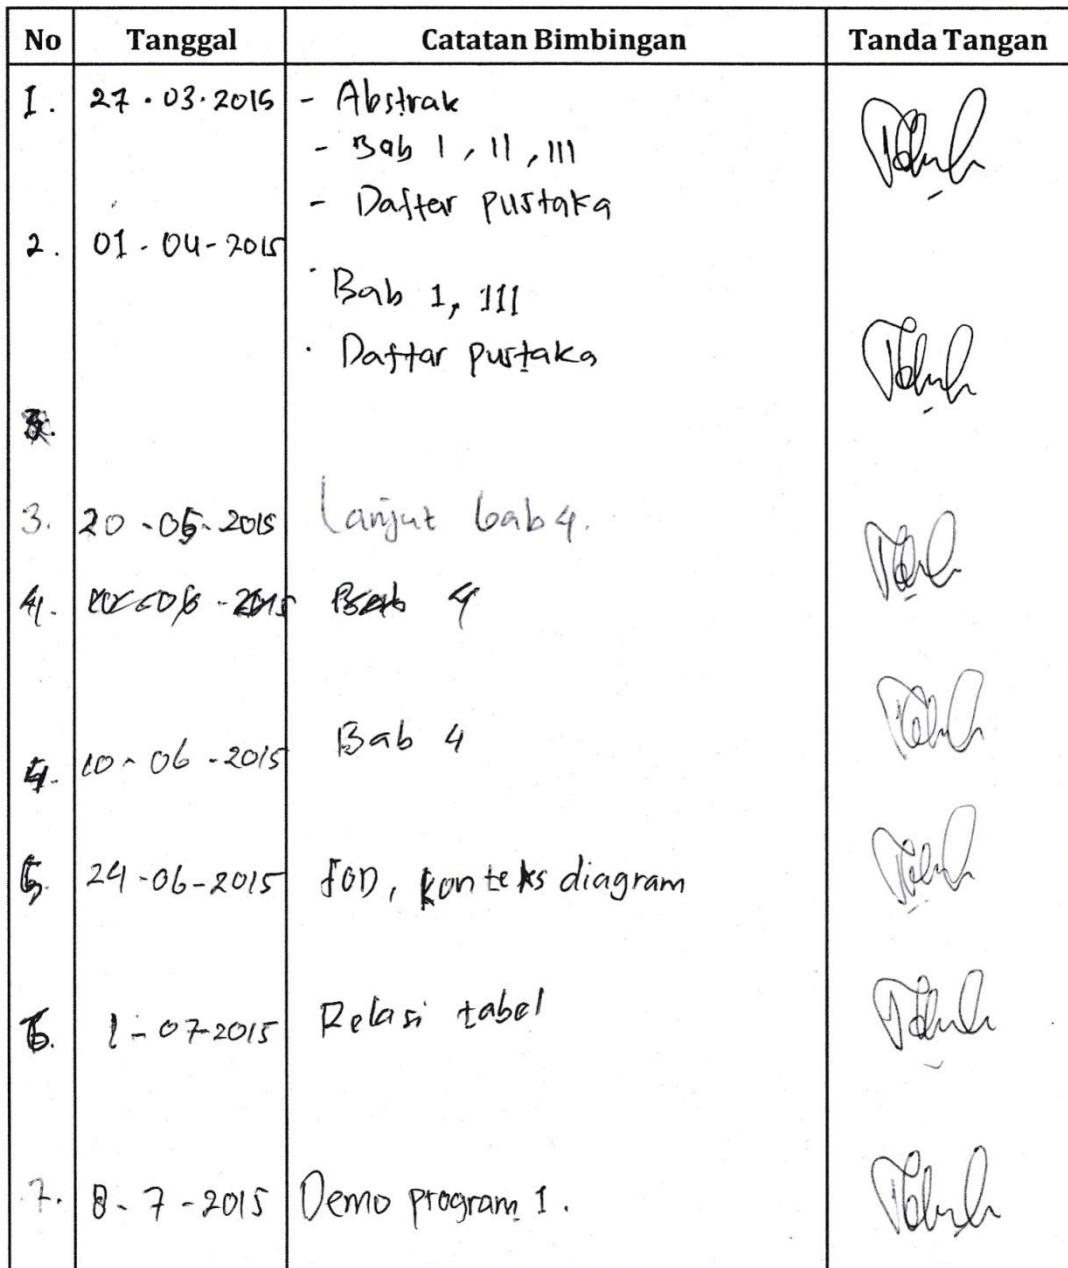 No Tanggal Catatan Bimbingan Tanda Tangan
1. 27 . 03 . 2015 - Abstrak
- Bab I, II, III
- Daftar pustaka
2. 01 - 04 - 2015
· Bab 1, III
· Daftar pustaka
3.
3. 20 - 05 - 2015 Lanjut bab 4.
4. - 2015 Bab 4
4. 10 - 06 - 2015 Bab 4
5. 24 - 06 - 2015 FOD, konteks diagram
6. 1 - 07 - 2015 Relasi tabel
7. 8 - 7 - 2015 Demo program 1.